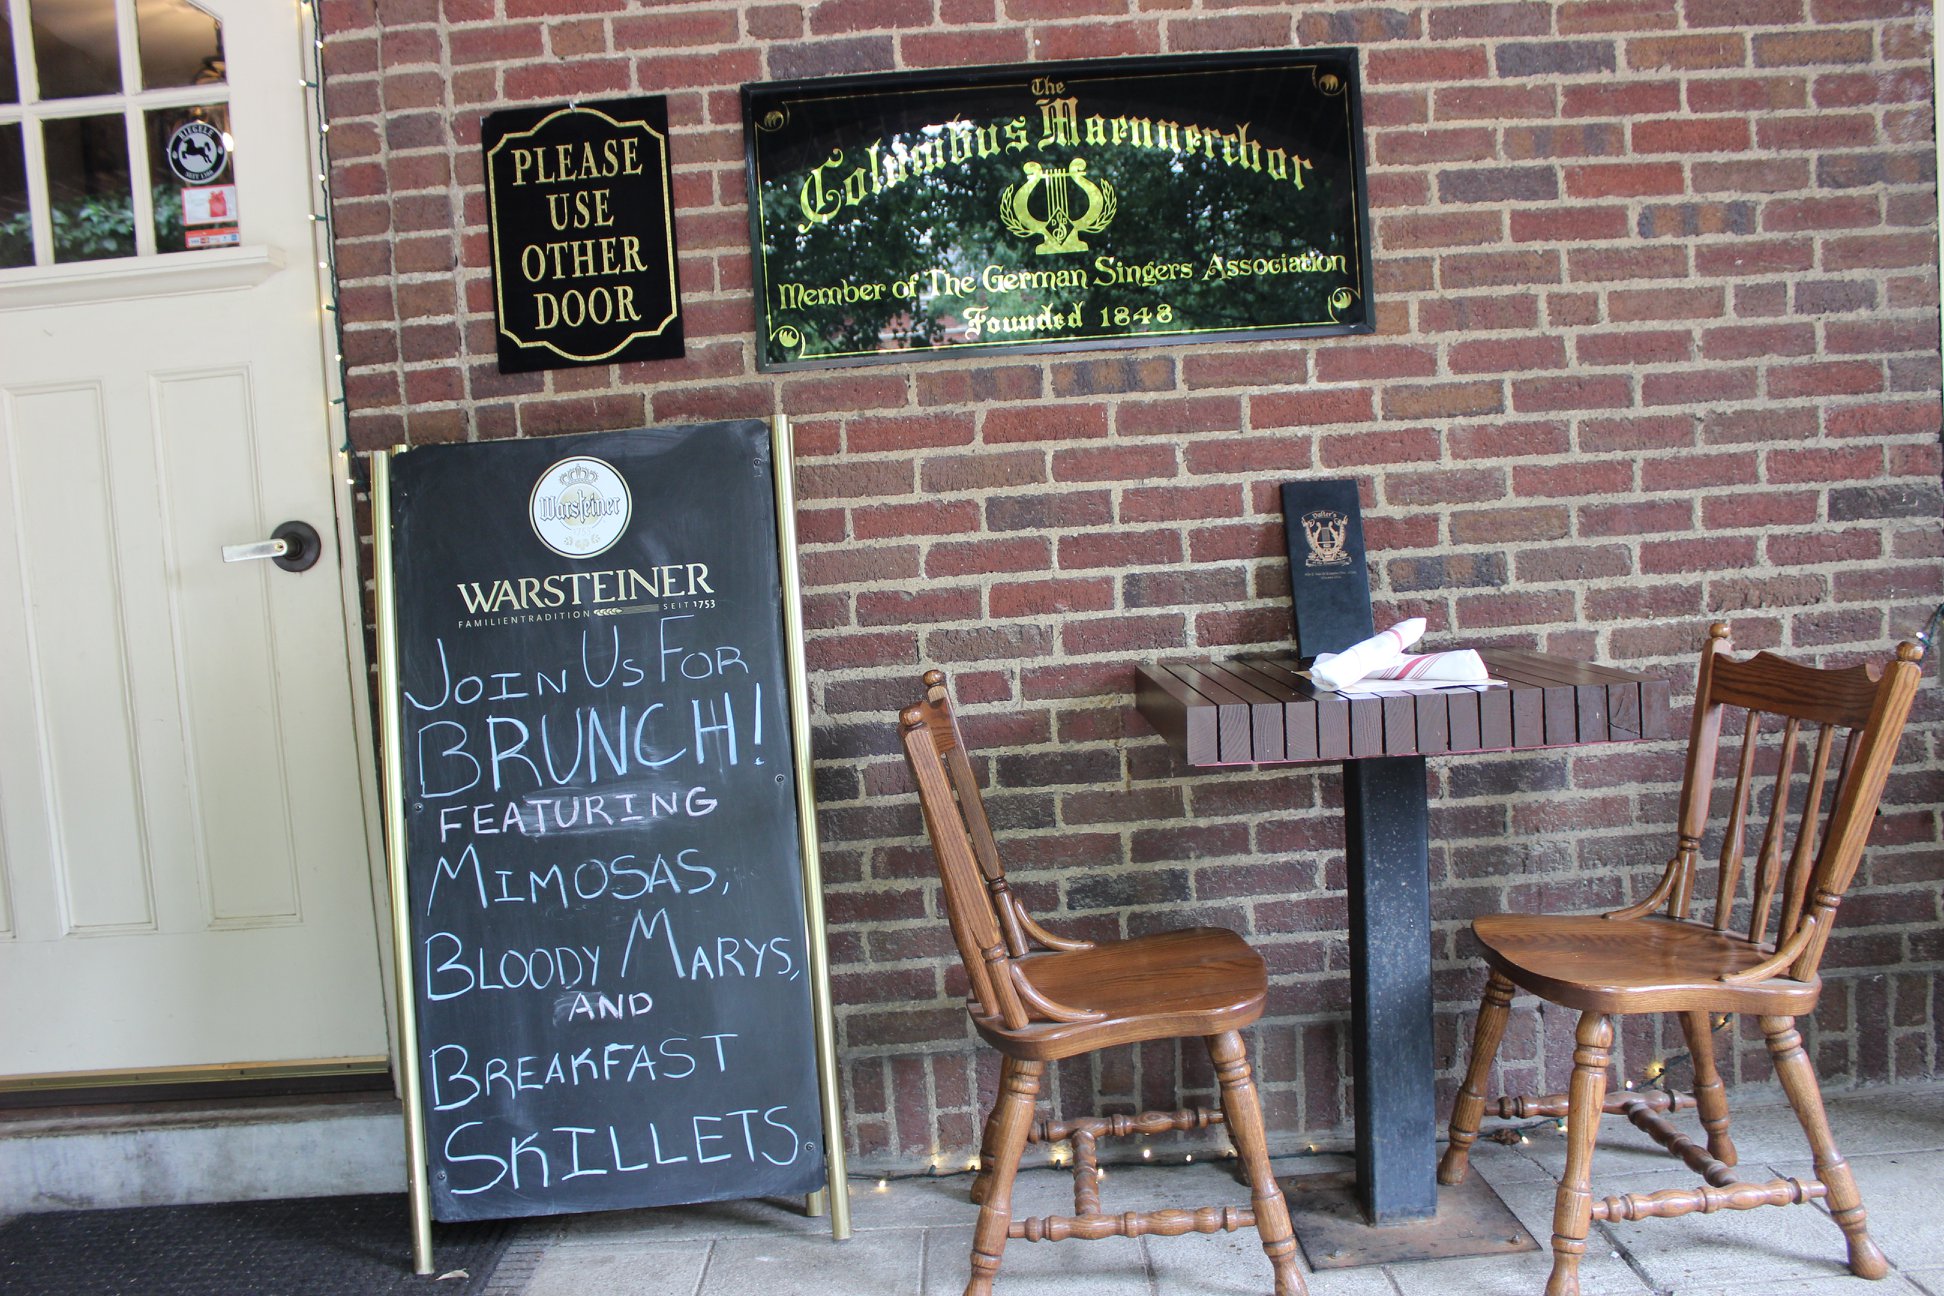 RIEGELE
SEIT 1386
PLEASE
USE
OTHER
DOOR
The
Columbus Maennerchor
Member of The German Singers Association
Founded 1848
Warsteiner
WARSTEINER
FAMILIENTRADITION SEIT 1753
JOIN US FOR
BRUNCH!
FEATURING
MIMOSAS,
BLOODY MARYS,
AND
BREAKFAST
SKILLETS